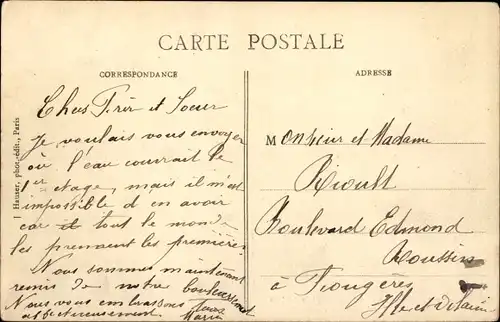 CARTE POSTALE
CORRESPONDANCE
ADRESSE
J Hauser, phot.-édit., Paris
Chers Frèr et Soeur
Je voulais vous envoyer
où l'eau courrait le
1er etage, mais il m'est
impossible d en avoir
car it tout le monde
les prennent les premières
Nous sommes maintenant
remis de notre bouleversement
Nous vous embrassons tous
affectueusement Marie
Monsieur et Madame
Rioult
Boulevard Edmond
Roussin
à Fougères
Ille et Vilaine